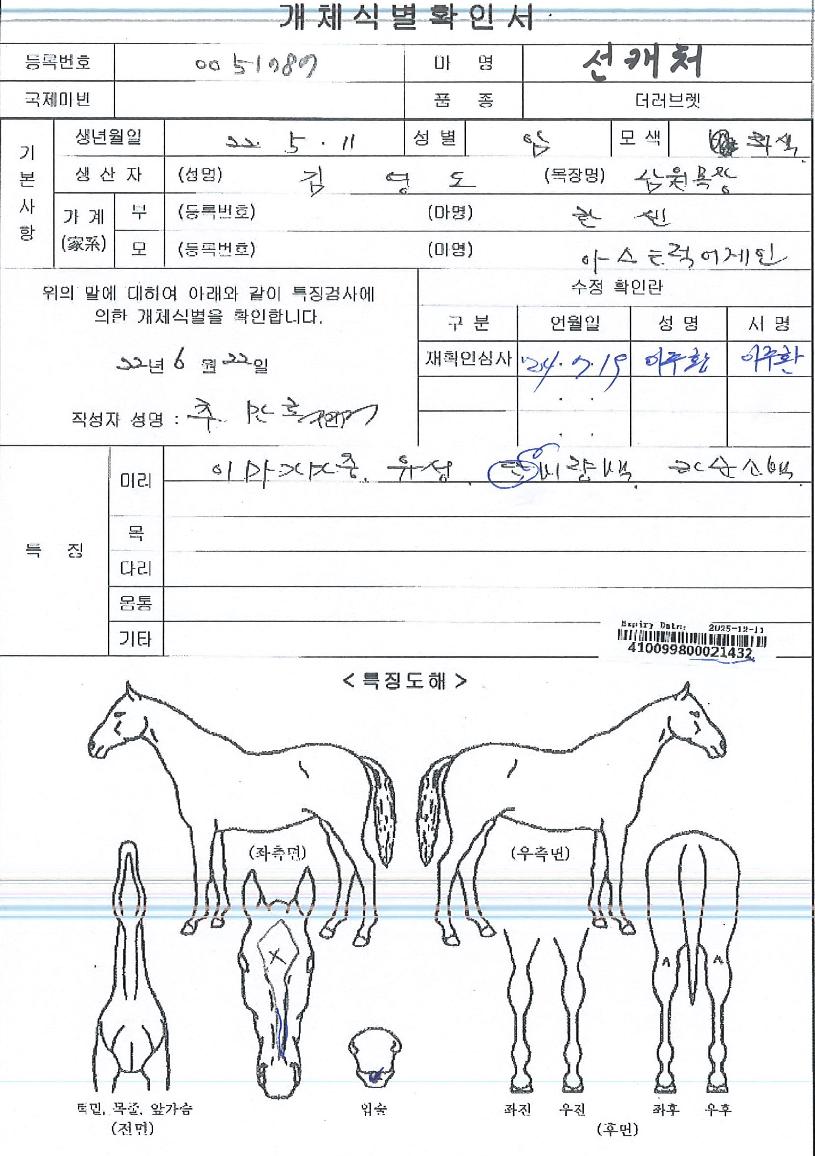 개체식별확인서
등록번호 0051087 마 명 선캐처
국제미빈 품 종 더러브렛
기본사항
생년월일 22. 5. 11 성별 암 모색 회색
생산자 (성명) 김 영 도 (목장명) 삼원목장
가계 (家系) 부 (등록번호) (마명)
모 (등록번호) (미명) 아스트럭어게인
위의 말에 대하여 아래와 같이 특징검사에
의한 개체식별을 확인합니다.
22년 6월 22일
작성자 성명 :
수정 확인란
구분 언월일 성명 시명
재확인심사 '24. 7. 19 이주환 이주환
특 징
머리 유성
목
다리
몸통
기타
Expiry Date: 2025-12-11
410099800021432
< 특징도해 >
(좌측면) (우측면)
턱밑, 목줄, 앞가슴 입술 좌전 우전 좌후 우후
(전면) (후면)